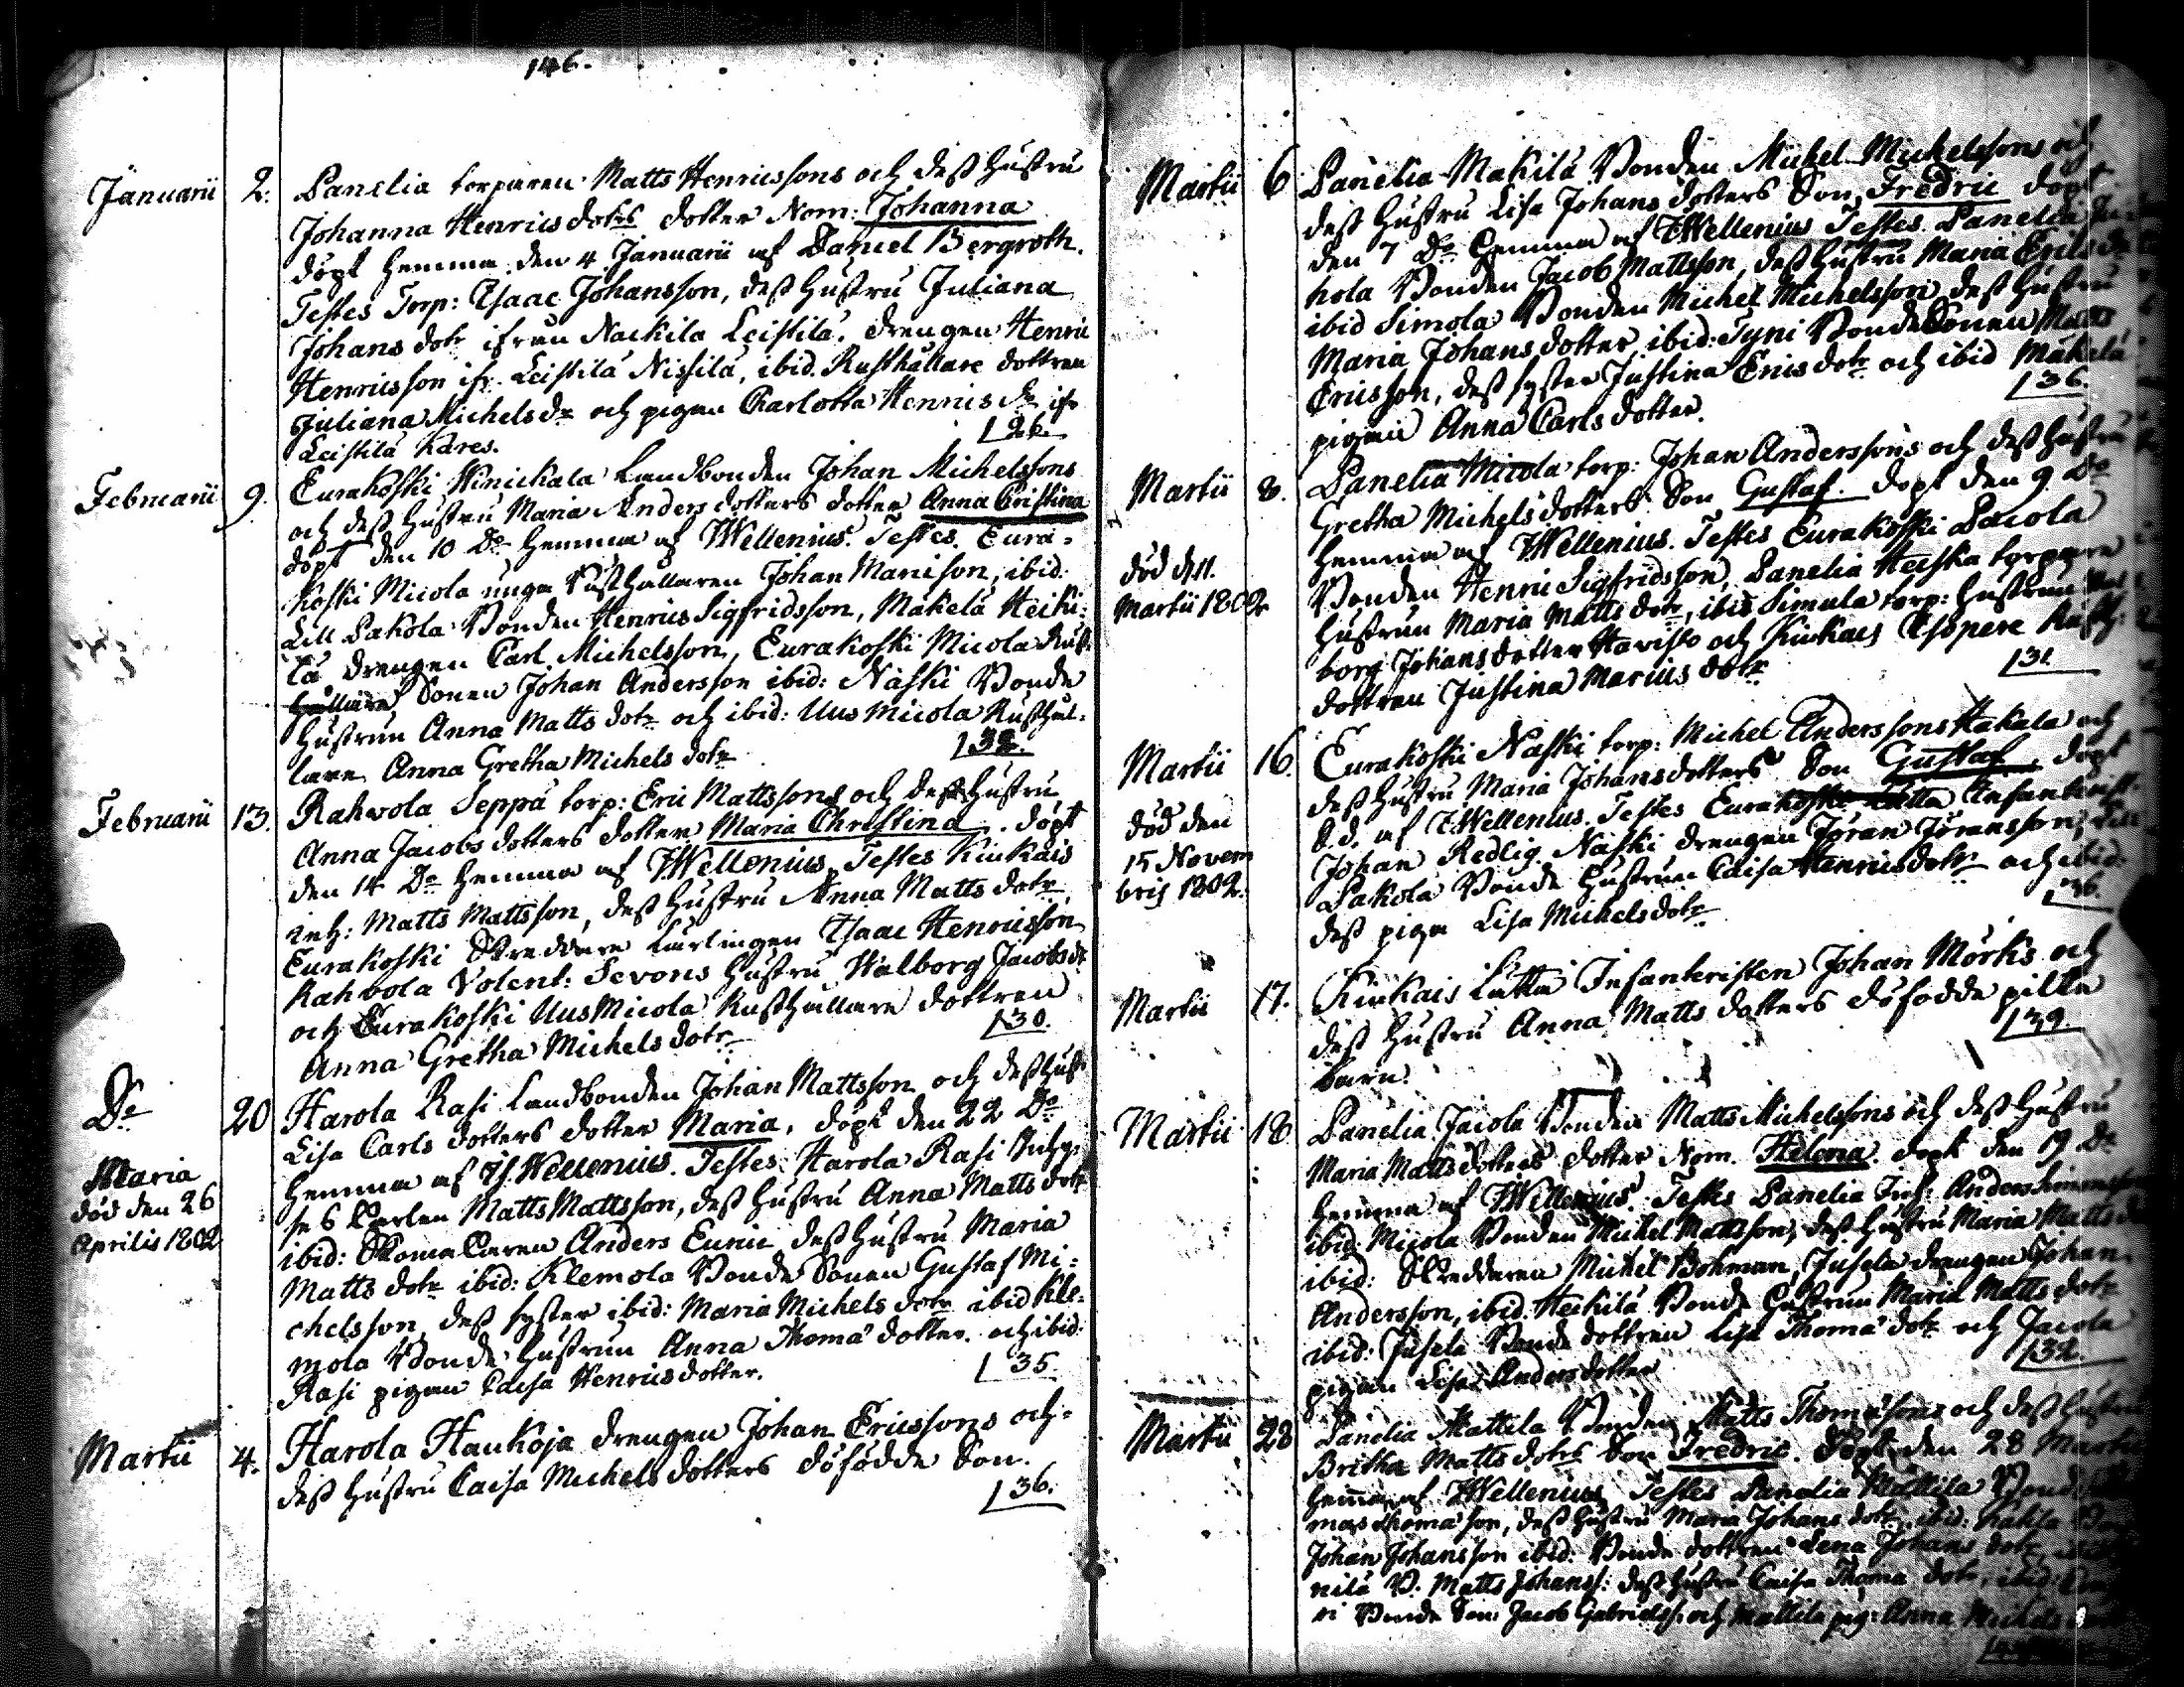 146.
Januarii 2. Panelia torparen Matts Henricssons och dess hustru
Johanna Henrics dotrs dotter Nom: Johanna
döpt hemma den 4 Januarii af Daniel Bergroth.
Testes Torp: Isaac Johansson, dess hustru Juliana
Johans dotr ifrån Nackila Leistilä, drengen Henric
Henricsson ifr. Leistilä Nissilä, ibid. Rusthållare dottren
Juliana Michels dr och pigan Charlotta Henrics dr ifr
Leistilä Kares. 26.
Februarii 9. Eurakoski Hinickala Landbonden Johan Michelssons
och dess hustru Maria Anders dotters dotter Anna Cristina
döpt den 10 Do hemma af JWellenius. Testes. Eura-
koski Micola unga Rusthållaren Johan Mariison, ibid:
Lill Pakola Bonden Henric Sigfridsson, Mäkelä Heiki-
lä drengen Carl Michelsson, Eurakoski Micola Rust-
hållare Sonen Johan Andersson ibid: Naski Bonde
hustrun Anna Matts dotr och ibid: Uus Micola Rusthål-
laren Anna Gretha Michels dotr 32.
Februarii 13. Rahvola Seppä torp: Eric Mattssons och dess hustru
Anna Jacobs dotters dotter Maria Christina. döpt
den 14 Do hemma af JWellenius. Testes Kiukais
inh: Matts Mattsson, dess hustru Anna Matts dotr,
Eurakoski Skreddare Lärlingen Isaac Henricsson
Rahvola Volent: Sevons hustru Walborg Jacobs dr
och Eurakoski Uus Micola Rusthållare dottren
Anna Gretha Michels dotr 30.
Do 20 Harola Rasi Landbonden Johan Mattsson och dess hust
Lisa Carls dotters dotter Maria, döpt den 22 Do
hemma af JWellenius. Testes: Harola Rasi
Karlen Matts Mattsson, dess hustru Anna Matts dotr
ibid: Skomakaren Anders Euric dess hustru Maria
Matts dotr ibid: Klemola Bonde Sonen Gustaf Mi-
chelsson, dess syster ibid: Maria Michels dotr ibid Kle-
mola Bonde hustrun Anna Thomæ dotter och ibid:
Rasi pigan Caisa Henrics dotter. 35.
Maria
död den 26
Aprilis 1802
Martii 4. Harola Haukoja drengen Johan Ericssons och
dess hustru Caisa Michels dotters döfödde Son.
36.
Martii 6 Panelia Makilä Bonden Michel Michelssons och
dess hustru Lisa Johans dotters Son Fredric döpt
den 7 Do hemma af JWellenius Testes Panelia
kola Bonden Jacob Mattsson, dess hustru Maria Erics dr
ibid Simola Bonden Michel Michelsson dess hustru
Maria Johans dotter ibid: Tyni Bonde Sonen Matts
Ericsson, dess syster Justina Erics dotr och ibid Mäkelä
pigan Anna Carls dotter. 36.
Martii 8. Panelia Micola torp: Johan Anderssons och dess hustru
Gretha Michels dotters Son Gustaf. döpt den 9 Do
hemma af JWellenius. Testes Eurakoski Pacola
Bonden Henric Sigfridsson, Panelia Heiska torpare
hustrun Maria Matts dotr, ibid Simula torp: hustrun Wal-
borg Johans dotter Haristo och Kiukais Isopere Rusth:
dottren Justina Marius dotr 31
död d. 11.
Martii 1802
Martii 16. Eurakoski Naski torp: Michel Anderssons Hakala och
dess hustru Maria Johans dotters Son Gustaf, döpt
S.d. af JWellenius. Testes Eurakoski Infanterist:
Johan Redlig. Naski drengen Jöran Jöransson, Lill
Pakola Bonde hustrun Caisa Henrics dotr och ibid:
dess piga Lisa Michels dotr 36.
död den
15 Novem
bris 1802.
Martii 17. Kiukais Lutta Infanteristen Johan Mörks och
dess hustru Anna Matts dotters döfödde pilte
barn. 39.
Martii 18. Panelia Jacola Bonden Matts Michelssons och dess hustru
Maria Matts dotters dotter Nom. Helena. döpt den 19 Do
hemma af JWellenius. Testes Panelia Anders Simonsson
ibid: Micola Bonden Michel Mattsson, dess hustru Maria Matts dr
ibid: Skreddaren Michel Bohman, Jusela drengen Johan
Andersson, ibid. Heikilä Bonde hustrun Maria Matts dotr
ibid: Jusela Bonde dottren Lisa Thomæ dotr och Jacola
pigan Lisa Anders dotter 32.
Martii 28 Panelia Mattila Bonden Matts Thomæsons och dess hustru
Britha Matts dotrs Son Fredric. döpt den 28 Martii
hemma af JWellenius Testes Panelia Mattila Bond
mas Thomæ son, dess hustru Maria Johans dotr, ibid:
Johan Johansson ibid: Bonde dottren Lena Johans dotr,
nilä B. Matts Johanss: dess hustru Caisa Thomæ dotr, ibid:
ri Bonde Son: Jacob Gabrielss: och Mattila pig: Anna Michels